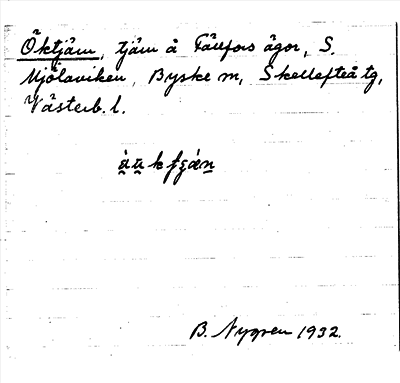 Öktjärn, tjärn å Fällfors ägor, S.
Mjölaviken, Byske m, Skellefteå tg,
Västerb. l.
B. Nygren 1932.